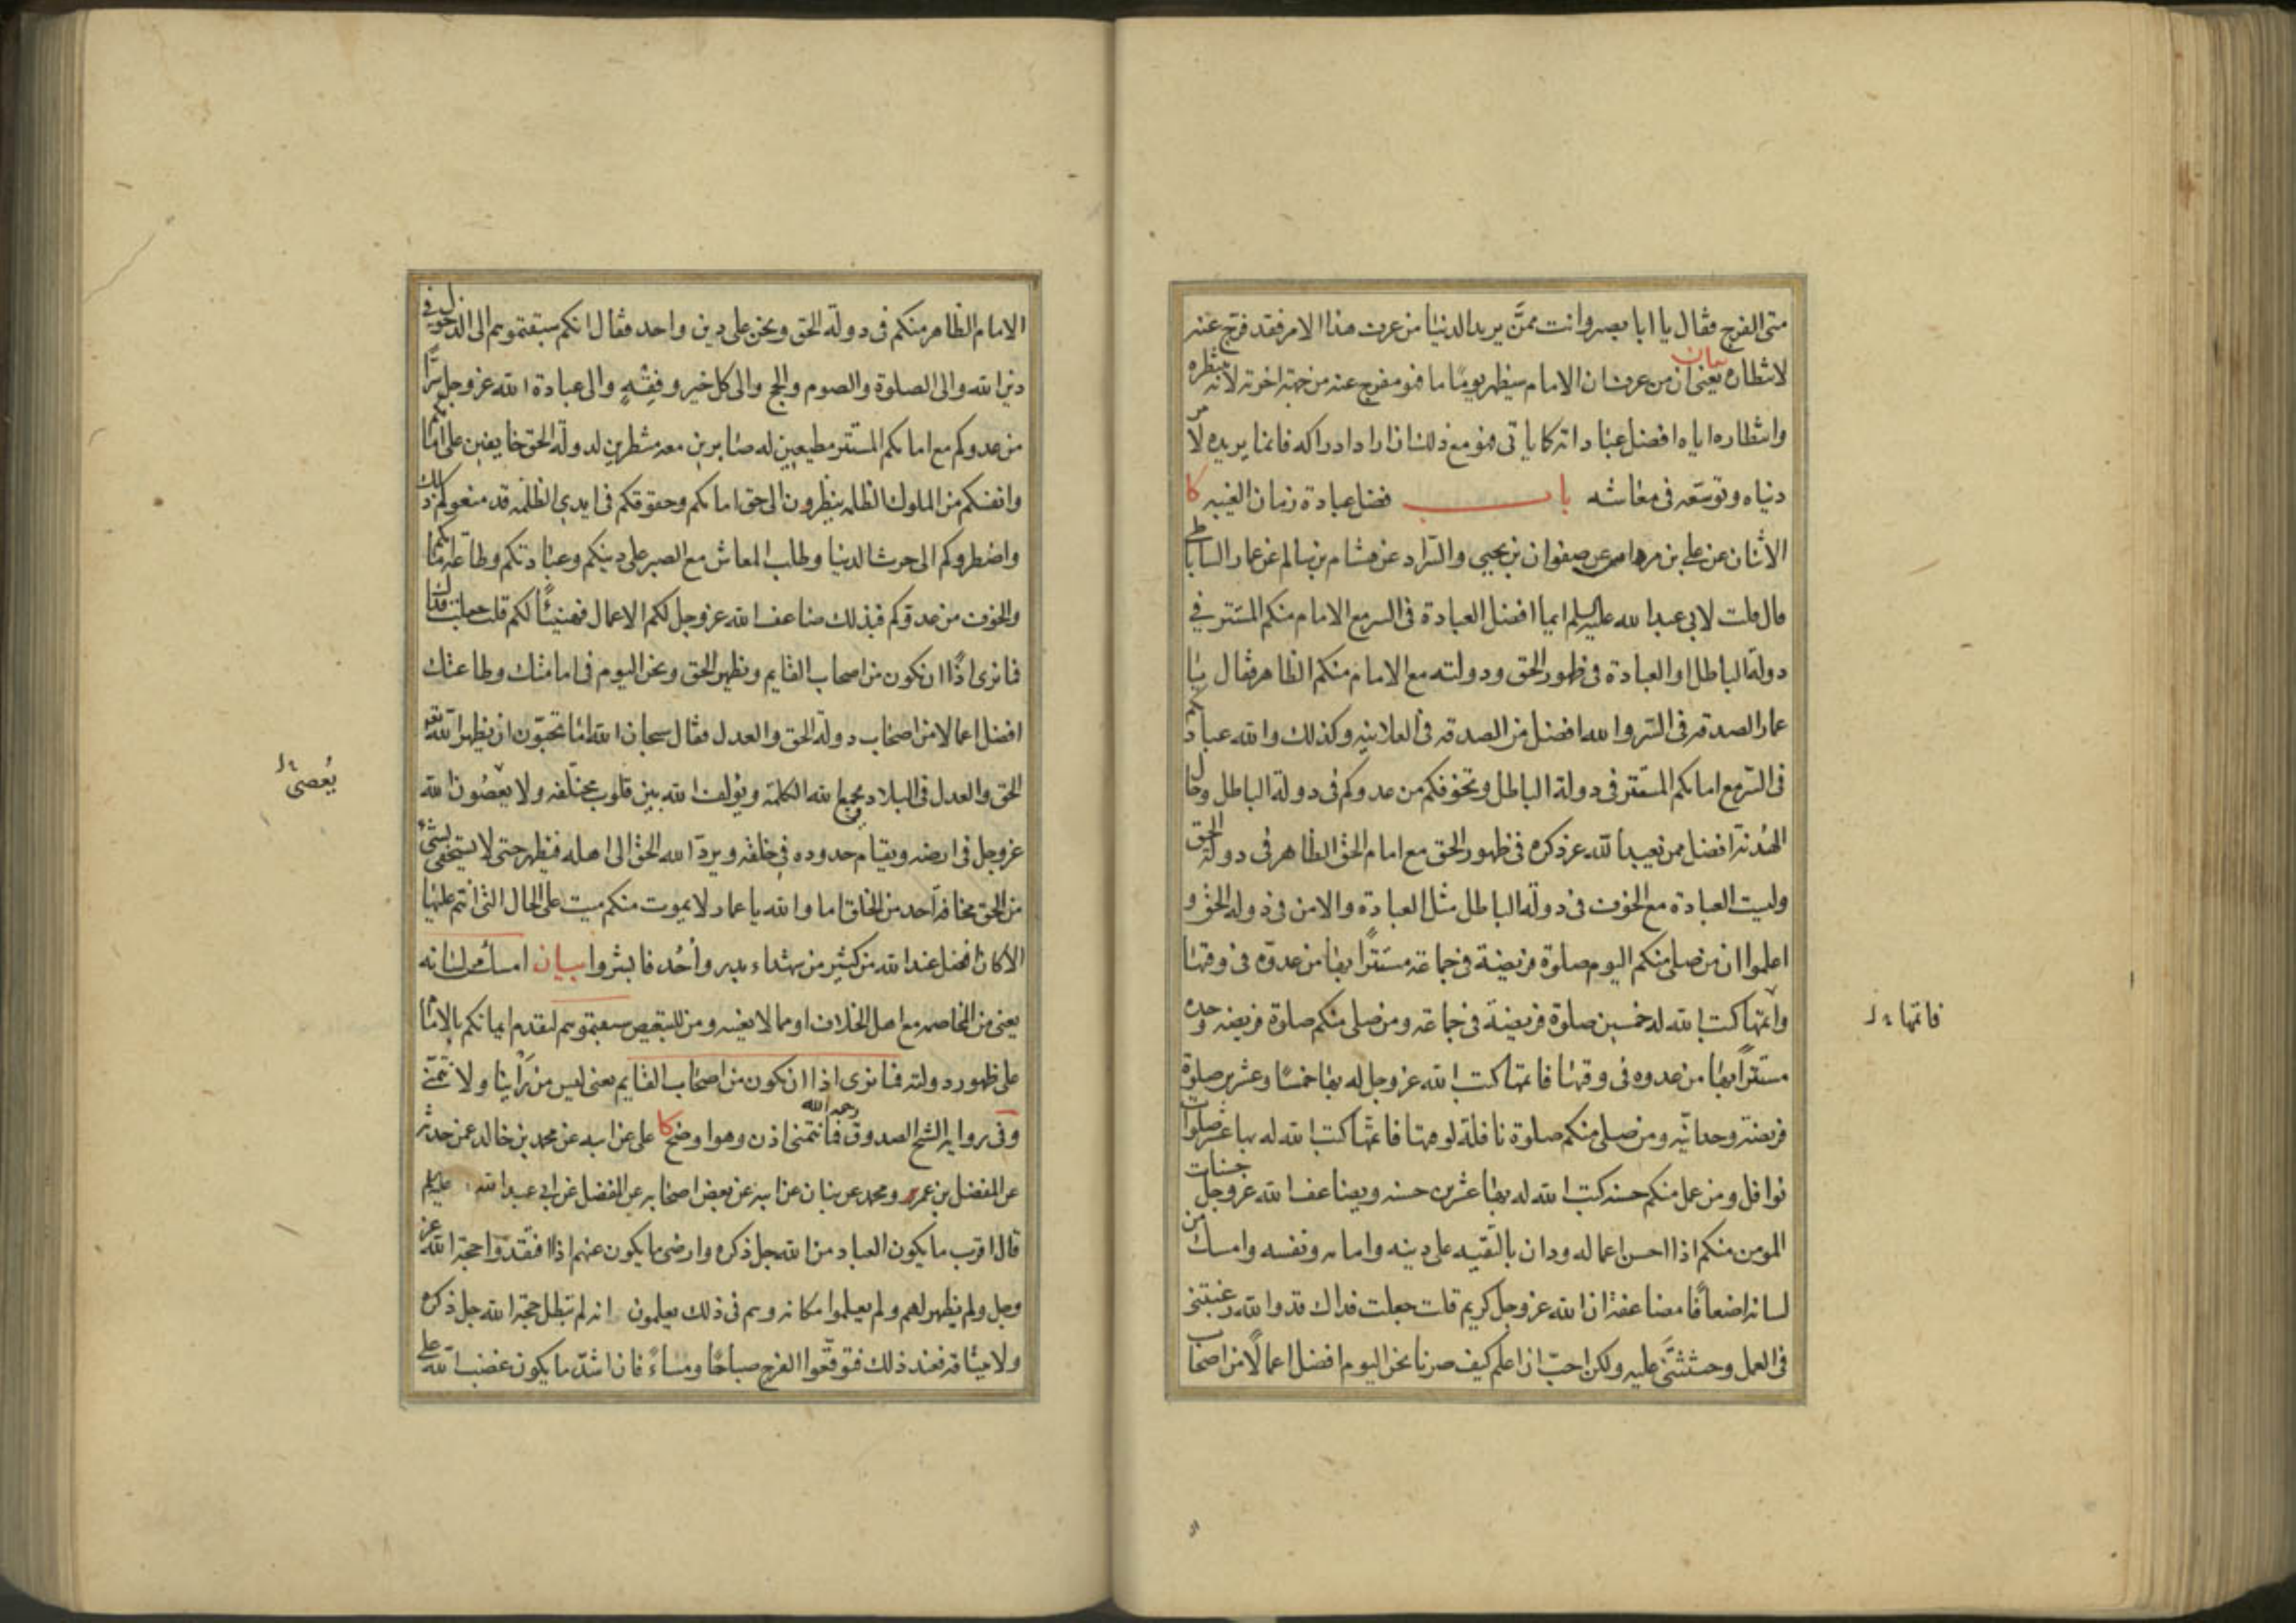 متى الفرج فقال يا ابا بصير وانت ممّن يريد الدنيا من عرف هذا الامر فقد فرج عنه
لانتظاره بيان يعني ان من عرف ان الامام سيظهر يومًا ما فهو مفرج عنه من جهة اخرته لانه ينتظره
وانتظاره اياه افضل عباداته كما ياتي فهو مع ذلك ان اراد ادراكه فانما يريده لامر
دنياه وتوسعه في معاشه باب فضل عبادة زمان الغيبه كا
الاثنان عن علي بن مرداس عن صفوان بن يحيى والسّراد عن هشام بن سالم عن عمار الساباطي
قال قلت لابي عبد الله عليه السلم ايما افضل العبادة في السر مع الامام منكم المستتر في
دولة الباطل او العبادة في ظهور الحق ودولته مع الامام منكم الظاهر فقال يا
عمار الصدقة في السّر والله افضل من الصدقه في العلانيه وكذلك والله عبادتكم
في السّر مع امامكم المستتر في دولة الباطل وتخوفكم من عدوكم في دولة الباطل وحال
الهُدنة افضل ممن يعبد الله عز ذكره في ظهور الحق مع امام الحق الظاهر في دولة الحق
وليست العبادة مع الخوف في دولة الباطل مثل العبادة والامن في دولة الحق و
اعلموا ان من صلى منكم اليوم صلوة فريضة في جماعة مستترًا بها من عدوّه في وقتها
واتمها كتب الله له خمسين صلوة فريضة في جماعة ومن صلى منكم صلوة فريضه وحده
فاتمها
مستترًا بها من عدوه في وقتها فاتمها كتب الله عز وجل له بها خمسًا وعشرين صلوة
فريضة وحدانيّه ومن صلى منكم صلوة نافلة لوقتها فاتمها كتب الله له بها عشر صلوات
نوافل ومن عمل منكم حسنه كتب الله له بها عشرين حسنه ويضاعف الله عز وجل حسنات
المومن منكم اذا احسن اعماله ودان بالتّقيه على دينه وامامه ونفسه وامسك من
لسانه اضعافًا مضاعفة ان الله عز وجل كريم قلت جعلت فداك قد والله رغبتني
في العمل وحثثتَني عليه ولكن احبّ ان اعلم كيف صرنا نحن اليوم افضل اعمالًا من اصحاب
الامام الظاهر منكم في دولة الحق ونحن على دين واحد فقال انكم سبقتموهم الى الدخول في
دين الله والى الصلوة والصوم والحج والى كل خير وفِقهٍ والى عبادة الله عز وجل سرًّا
من عدوكم مع امامكم المستتر مطيعين له صابرين معه منتظرين لدولة الحق خايفين على امامكم
وانفسكم من الملوك الظلمه ينظرون الى حق امامكم وحقوقكم في ايدي الظلمه قد منعوكم ذلك
واضطروكم الى حرث الدنيا وطلب المعاش مع الصبر على دينكم وعبادتكم وطاعة امامكم
والخوف من عدوّكم فبذلك ضاعف الله عز وجل لكم الاعمال فهنيئًا لكم قلت جعلت فداك
فما نرى اذًا ان نكون من اصحاب القايم ويظهر الحق ونحن اليوم في امامتك وطاعتك
افضل اعمالا من اصحاب دولة الحق والعدل فقال سبحان الله اما تحبّون ان يظهر الله تعالى
الحق والعدل في البلاد ويجمع الله الكلمة ويؤلف الله بين قلوب مختلفه ولا يعصُون الله
يُعصى
عز وجل في ارضه ويقام حدوده في خلقه ويردّ الله الحق الى اهله فيظهر حتى لا يستخفى بشيء
من الحق مخافة احد من الخلق اما والله يا عمار لا يموت منكم ميت على الحال التي انتم عليها
الا كان افضل عند الله من كثير من شهداء بدر واُحُد فابشروا بيان امساك من لسانه
يعني من المخاصمه مع اهل الخلاف او مما لا يعنيه ومن للتبعيض سبقتموهم لتقدم ايمانكم بالامام
على ظهور دولته فما نرى اذا ان نكون من اصحاب القايم يعني ليس من رَأينا ولا نتمنّى
وفي رواية الشيخ الصدوق رحمه الله فما نتمنى اذن وهو اوضح كا علي عن ابيه عن محمد بن خالد عمن حدثه
عن المفضل بن عمر ومحمد عن بنان عن ابيه عن بعض اصحابه عن المفضل عن ابي عبد الله عليه السلم
قال اقرب ما يكون العباد من الله جل ذكره وارضى ما يكون عنهم اذا افتقدوا حجة الله عز
وجل ولم يظهر لهم ولم يعلموا مكانه وهم في ذلك يعلمون انه لم تبطل حجة الله جل ذكره
ولا ميثاقه فعند ذلك فتوقّعوا الفرج صباحًا ومساءً فان اشدّ ما يكون غضب الله على